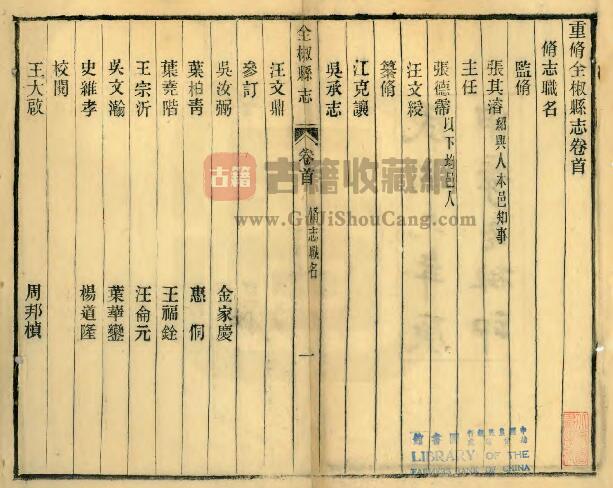 重脩全椒縣志卷首
脩志職名
監脩
張其濬 紹興人本邑知事
主任
張德霈 以下均邑人
汪文綬
纂脩
江克讓
吳承志
全椒縣志 卷首 脩志職名 一
汪文鼎
參訂
吳汝弼 金家慶
葉柏青 惠侗
葉堯階 王福銓
王宗沂 汪侖元
吳文瀚 葉華鑾
史維孝 楊道隆
校閱
王大啟 周邦楨
古籍 古籍收藏網
www.GuJiShouCang.com
圖書館
LIBRARY OF THE
OF CHINA